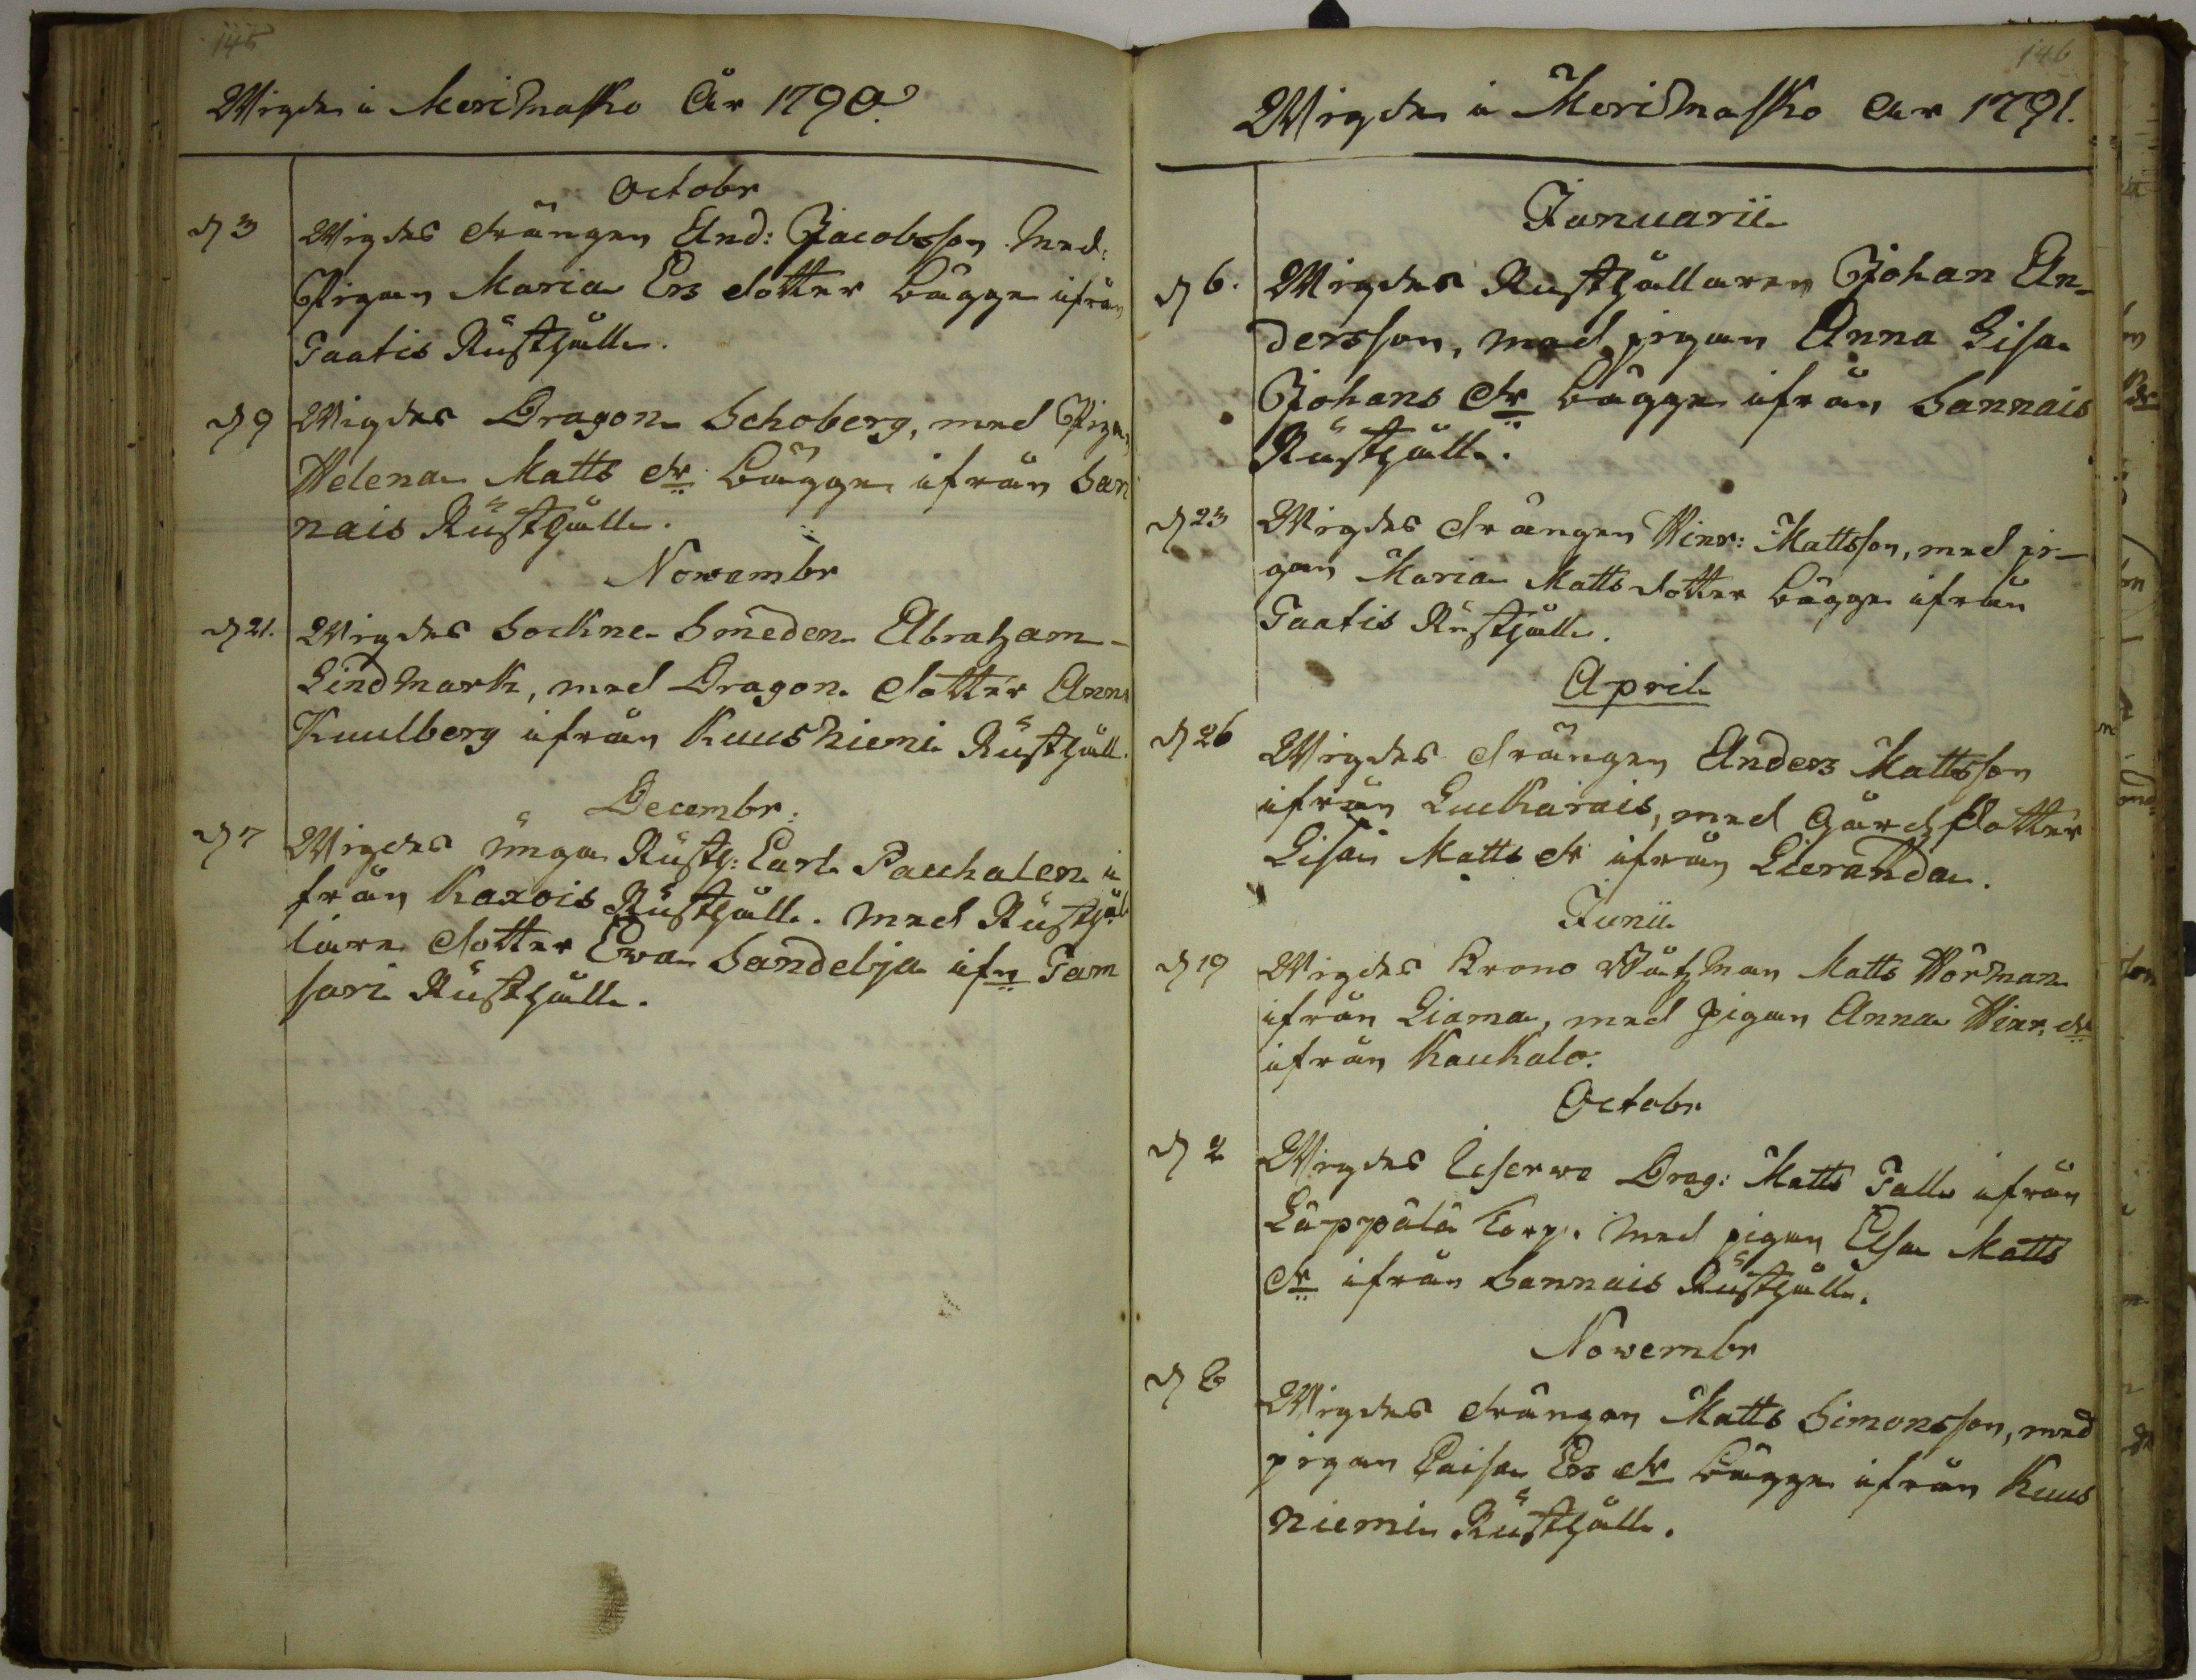 145
Wigde i Merimasko År 1790.
Octobr
d 3 Wigdes drängen And: Jacobsson med
Pigan Maria Ers dotter bägge ifrån
Taatis Rusthåll.
d 9 Wigdes Dragon Schoberg, med Pigan
Helena Matts dr bägge ifrån San
nais Rusthåll.
Novembr
d 21. Wigdes Sockne Smeden Abraham
Lindmark, med Dragon dotter Anna
Kuulberg ifrån Kuusniemi Rusthåll.
Decembr:
d 7 Wigdes unga Rusth: Carl Pauhalen i
från Karois Rusthåll. med Rusthål
lare dotter Ewa Sandelja ifn Tam
sari Rusthåll.
146
Wigde i Merimasko År 1791.
Januarii
d 6. Wigdes Rusthållaren Johan An-
dersson, med pigan Anna Lisa
Johans dr bägge ifrån Sannais
Rusthåll.
d 23 Wigdes drängen Hinr: Mattsson, med pi-
gan Maria Matts dotter bägge ifrån
Taatis Rusthåll.
April
d 26 Wigdes drängen Anders Mattsson
ifrån Luckarais, med Gårds dotter
Lisa Matts dr ifrån Lieranda.
Junii
d 19 Wigdes Krono Båtzman Matts Hörman
ifrån Liama, med Pigan Anna Hinr. dr
ifrån Kaukalo.
Octobr
d 2 Wigdes Reserve Drag: Matts Tall ifrån
Läppälä Torp. med pigan Elsa Matts
dr ifrån Sannais Rusthåll.
Novembr
d 6 Wigdes drängen Matts Simonsson, med
pigan Caisa Ers dr bägge ifrån Kuus
niemi Rusthåll.